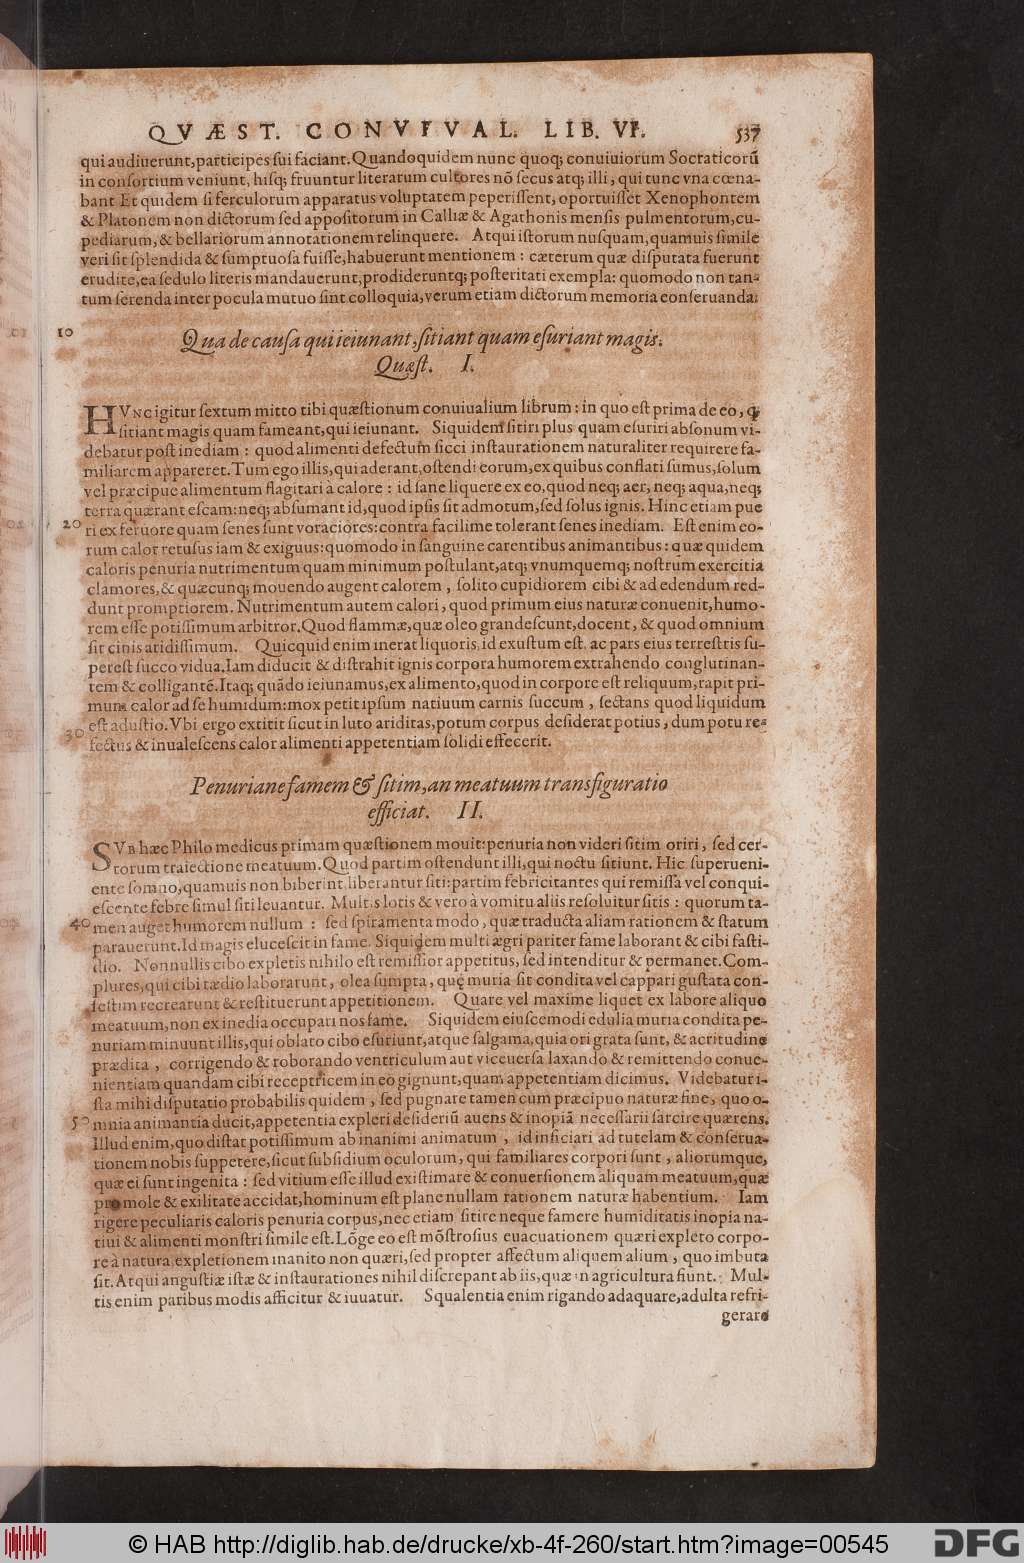 QVÆST. CONVIVAL. LIB. VI. 537
qui audiuerunt,participes sui faciant. Quandoquidem nunc quoq; conuiuiorum Socraticorũ
in consortium veniunt, hisq; fruuntur literarum cultores nõ secus atq; illi, qui tunc vna cœna-
bant Et quidem si ferculorum apparatus voluptatem peperissent, oportuisset Xenophontem
& Platonem non dictorum sed appositorum in Calliæ & Agathonis mensis pulmentorum,cu-
pediarum,& bellariorum annotationem relinquere. Atqui istorum nusquam,quamuis simile
veri sit splendida & sumptuosa fuisse,habuerunt mentionem: cæterum quæ disputata fuerunt
erudite,ea sedulo literis mandauerunt,prodideruntq; posteritati exempla: quomodo non tan-
tum serenda inter pocula mutuo sint colloquia,verum etiam dictorum memoria conseruanda.
10
Qua de causa qui ieiunant,sitiant quam esuriant magis.
Quæst. I.
HVNC igitur sextum mitto tibi quæstionum conuiualium librum: in quo est prima de eo, q̃
sitiant magis quam fameant,qui ieiunant. Siquidem sitiri plus quam esuriri absonum vi-
debatur post inediam: quod alimenti defectum sicci instaurationem naturaliter requirere fa-
miliarem appareret. Tum ego illis,qui aderant,ostendi eorum,ex quibus conflati sumus,solum
vel præcipue alimentum flagitari à calore: id sane liquere ex eo,quod neq; aer, neq; aqua,neq;
terra quærant escam:neq; absumant id,quod ipsis sit admotum,sed solus ignis. Hinc etiam pue
20 ri ex feruore quam senes sunt voraciores:contra facilime tolerant senes inediam. Est enim eo-
rum calor retusus iam & exiguus:quomodo in sanguine carentibus animantibus: quæ quidem
caloris penuria nutrimentum quam minimum postulant,atq; vnumquemq; nostrũm exercitia
clamores,& quæcunq; mouendo augent calorem, solito cupidiorem cibi & ad edendum red-
dunt promptiorem. Nutrimentum autem calori, quod primum eius naturæ conuenit,humo-
rem esse potissimum arbitror. Quod flammæ,quæ oleo grandescunt,docent, & quod omnium
sit cinis aridissimum. Quicquid enim inerat liquoris, id exustum est, ac pars eius terrestris su-
perest succo vidua. Iam diducit & distrahit ignis corpora humorem extrahendo conglutinan-
tem & colligantẽ. Itaq; quãdo ieiunamus,ex alimento,quod in corpore est reliquum,rapit pri-
mum calor ad se humidum:mox petit ipsum natiuum carnis succum, sectans quod liquidum
30 est adustio. Vbi ergo extitit sicut in luto ariditas,potum corpus desiderat potius, dum potu re-
fectus & inualescens calor alimenti appetentiam solidi effecerit.
Penuriane famem & sitim,an meatuum transfiguratio
efficiat. II.
SVB hæc Philo medicus primam quæstionem mouit:penuria non videri sitim oriri, sed cer-
torum traiectione meatuum. Quod partim ostendunt illi,qui noctu sitiunt. Hic superueni-
ente somno,quamuis non biberint liberantur siti:partim febricitantes qui remissa vel conqui-
escente febre simul siti leuantur. Multis lotis & vero à vomitu aliis resoluitur sitis: quorum ta-
40 men auget humorem nullum: sed spiramenta modo, quæ traducta aliam rationem & statum
parauerunt. Id magis elucescit in fame. Siquidem multi ægri pariter fame laborant & cibi fasti-
dio. Nonnullis cibo expletis nihilo est remissior appetitus, sed intenditur & permanet. Com-
plures,qui cibi tædio laborarunt, olea sumpta, quę muria sit condita vel cappari gustata con-
festim recrearunt & restituerunt appetitionem. Quare vel maxime liquet ex labore aliquo
meatuum,non ex inedia occupari nos fame. Siquidem eiuscemodi edulia muria condita pe-
nuriam minuunt illis,qui oblato cibo esuriunt,atque salgama,quia ori grata sunt, & acritudine
prædita, corrigendo & roborando ventriculum aut viceuersa laxando & remittendo conue-
nientiam quandam cibi receptricem in eo gignunt,quam appetentiam dicimus. Videbatur i-
sta mihi disputatio probabilis quidem, sed pugnare tamen cum præcipuo naturæ fine, quo o-
50 mnia animantia ducit,appetentia expleri desideriũ auens & inopiã necessarii sarcire quærens.
Illud enim,quo distat potissimum ab inanimi animatum, id inficiari ad tutelam & conserua-
tionem nobis suppetere,sicut subsidium oculorum, qui familiares corpori sunt, aliorumque,
quæ ei sunt ingenita: sed vitium esse illud existimare & conuersionem aliquam meatuum,quæ
pro mole & exilitate accidat,hominum est plane nullam rationem naturæ habentium. Iam
rigere peculiaris caloris penuria corpus,nec etiam sitire neque famere humiditatis inopia na-
tiui & alimenti monstri simile est. Lõge eo est mõstrosius euacuationem quæri expleto corpo-
re à natura,expletionem inanito non quæri,sed propter affectum aliquem alium, quo imbuta
sit. Atqui angustiæ istæ & instaurationes nihil discrepant ab iis,quæ in agricultura fiunt. Mul-
tis enim paribus modis afficitur & iuuatur. Squalentia enim rigando adaquare,adulta refri-
gerare
© HAB http://diglib.hab.de/drucke/xb-4f-260/start.htm?image=00545 DFG